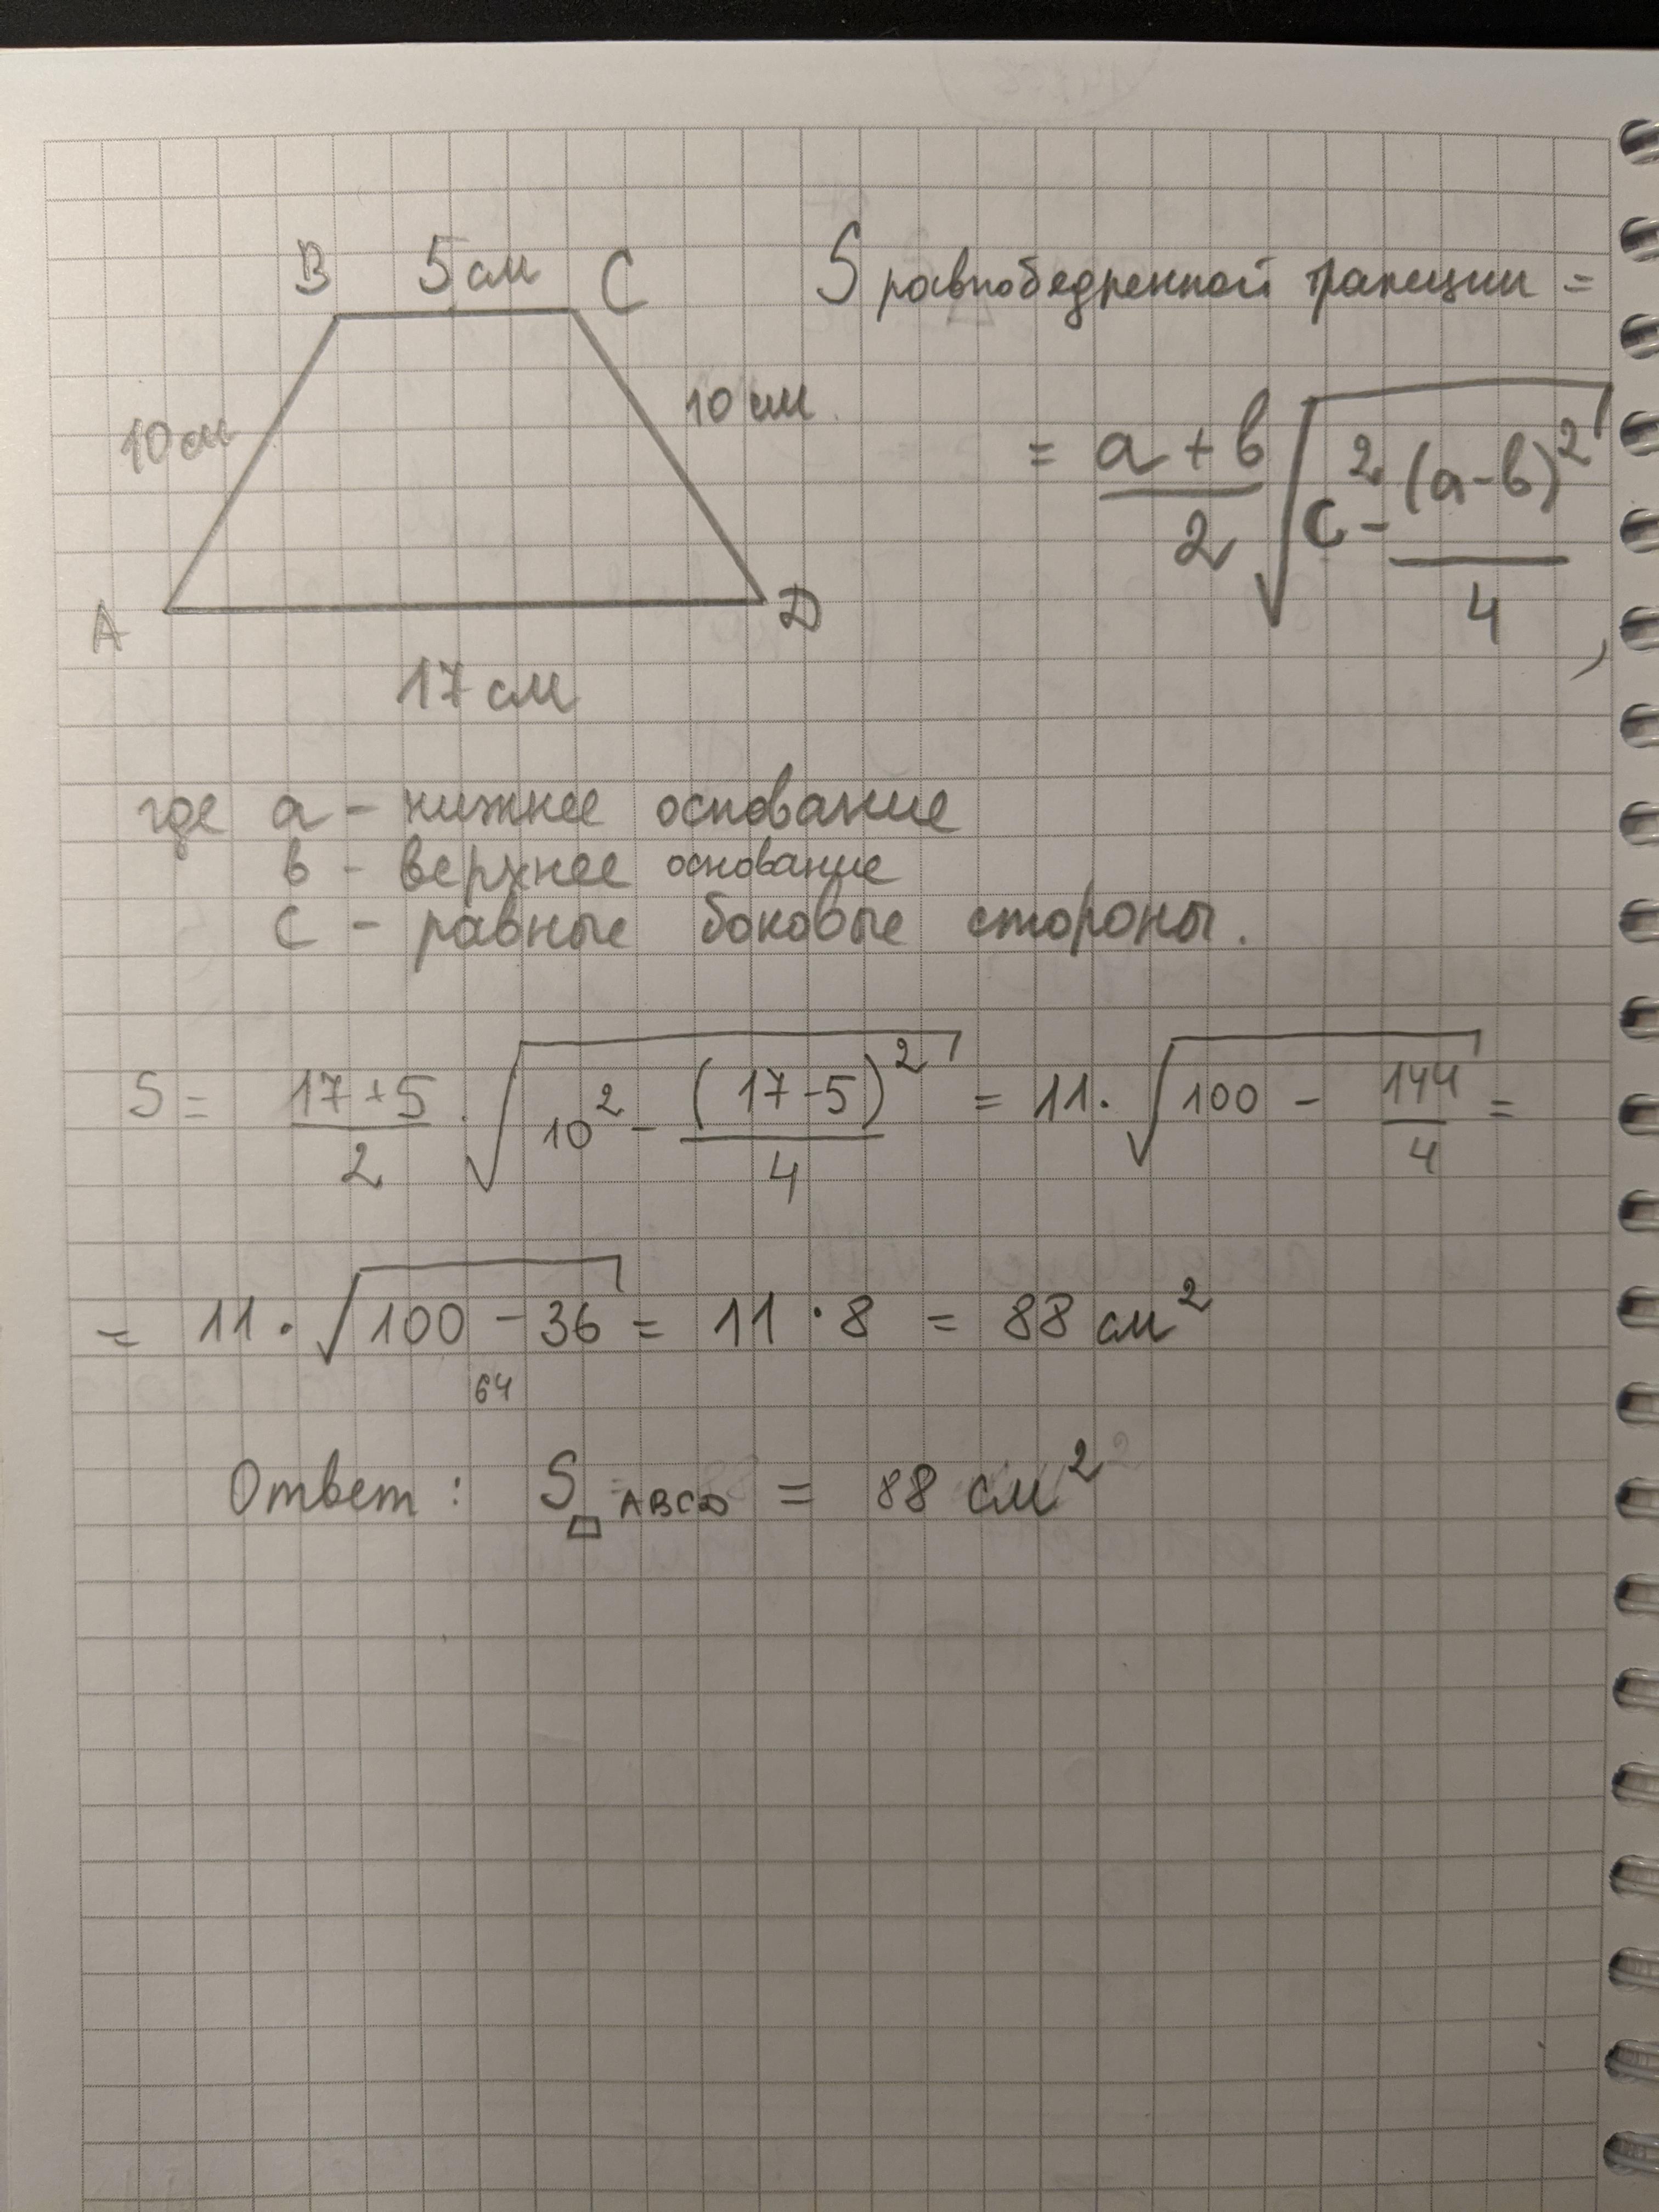 B 5 см C
S равнобедренной трапеции =
10 см
10 см
= a + b / 2 √(c² - (a-b)² / 4) ,
A D
17 см
где a - нижнее основание
b - верхнее основание
c - равные боковые стороны.
S = 17+5 / 2 · √(10² - (17-5)² / 4) = 11 · √(100 - 144 / 4) =
= 11 · √(100 - 36) = 11 · 8 = 88 см²
64
Ответ: S ▱ ABCD = 88 см²